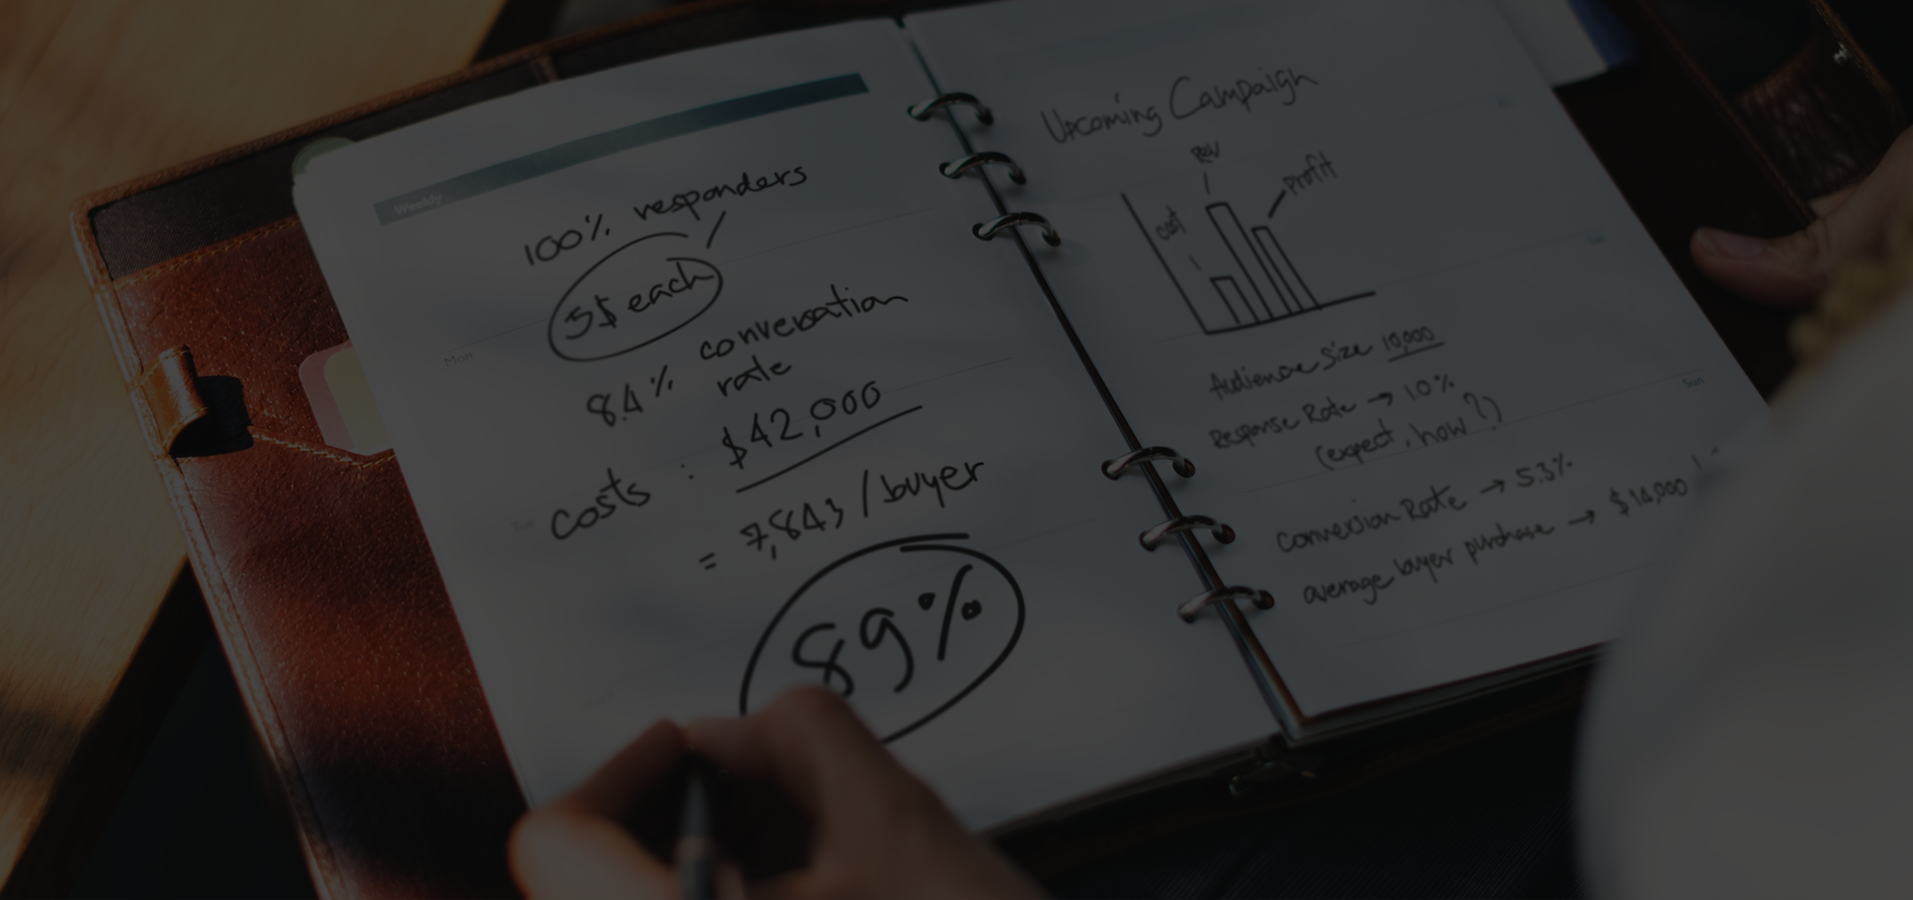 Weekly
100% responders
5$ each
8.4% conversation
rate
costs : $42,000
= 7,843 / buyer
89%
Mon
Upcoming Campaign
Rev
cost
profit
Audience Size 10,000
Response Rate → 1.0%
(expect, how?)
Conversion Rate → 5.3%
average buyer purchase → $14,000
Sun